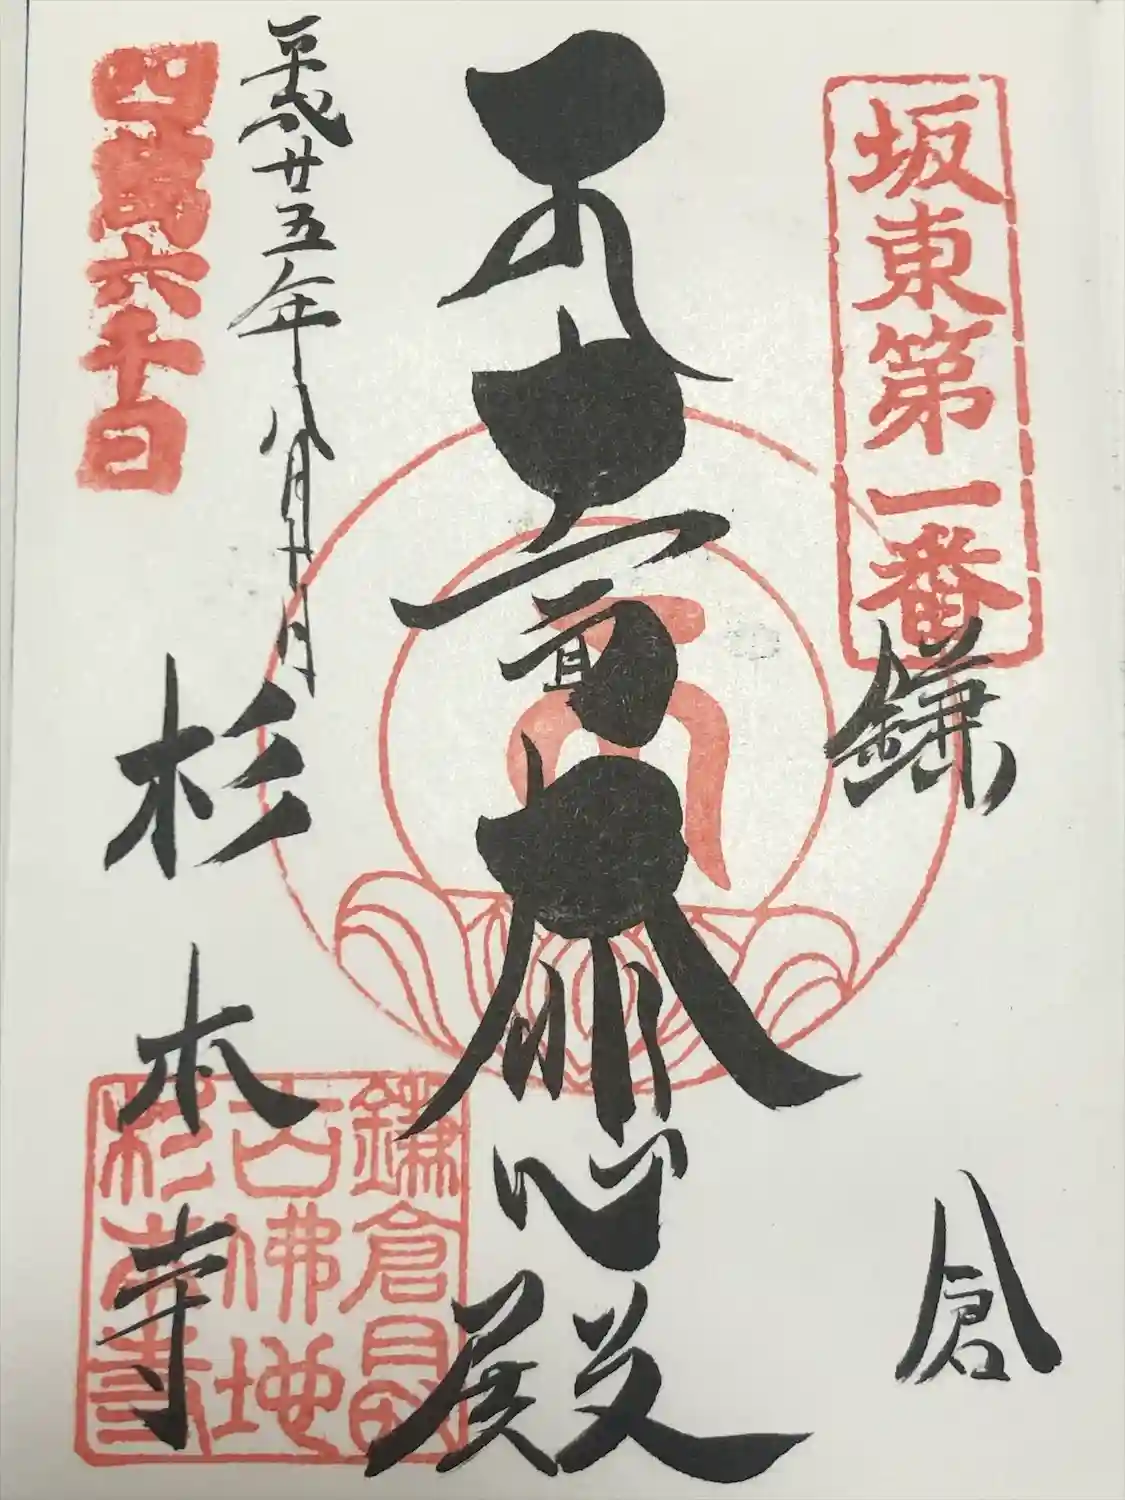 坂東第一番
鎌倉
大悲殿
平成廿五年八月
四萬六千日
杉本寺
鎌倉最
古佛地
杉本寺